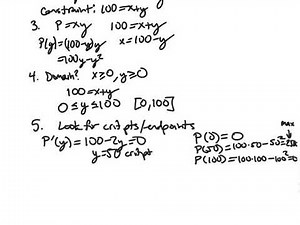 Constraint: 100=x+y
3. P=xy 100=x+y
P(y)=(100-y)y x=100-y
=100y-y²
4. Domain? x≥0, y≥0
100=x+y
0≤y≤100 [0,100]
5. Look for crit pts/endpoints
P'(y)=100-2y=0
y=50 crit pt
max
P(0)=0
P(50)=100·50-50²=
P(100)=100·100-100²=0